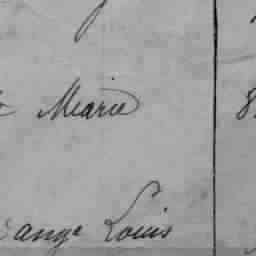 Marie 8
ange Louis